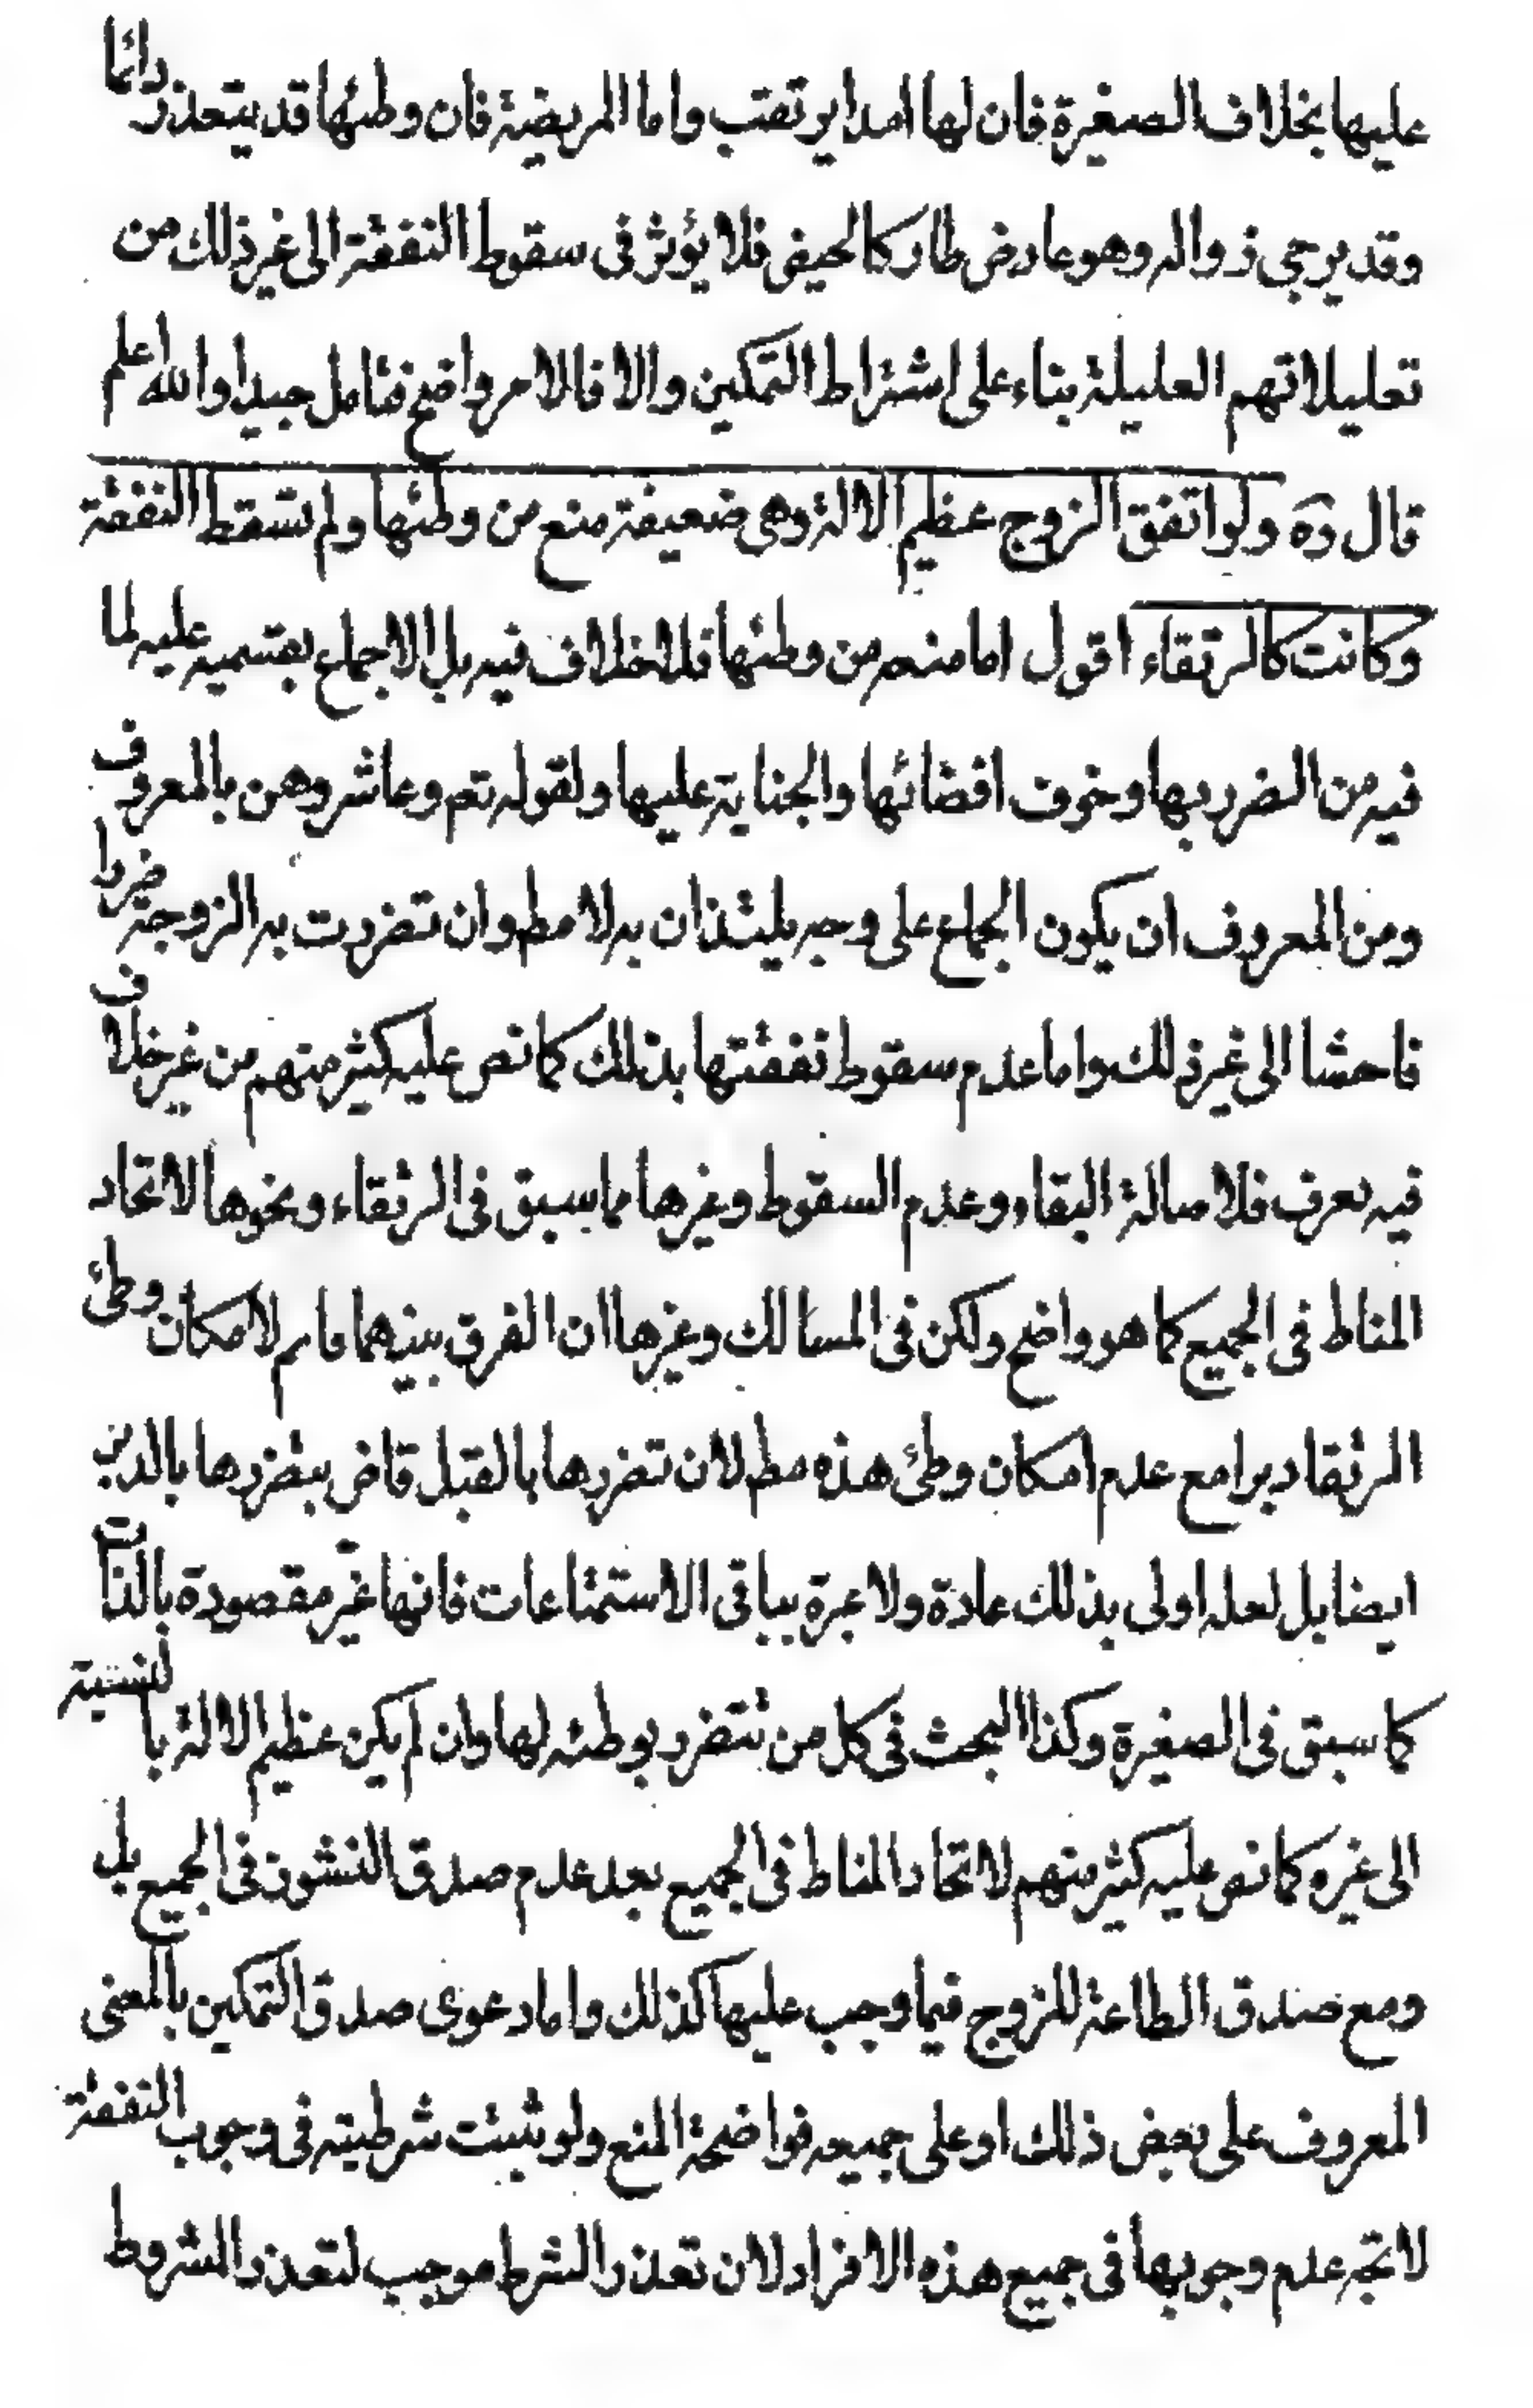 عليها بخلاف الصغيرة فان لها امدا يرتقب واما المريضة فان وطئها قد يتعذر دائما
وقد يرجى زواله وهو عارض طار كالحيض فلا يؤثر فى سقوط النفقة الى غير ذلك من
تعليلاتهم العليلة بناء على اشتراط التمكين والا فالامر واضح فتامل جيدا والله اعلم
قال ره ولو اتفق الزوج عظيم الالة وهى ضعيفة منع من وطئها ولم تسقط النفقة
وكانت كالرتقاء اقول اما منعه من وطئها فلا خلاف فيه بل الاجماع بقسميه عليه لما
فيه من الضرر بها وخوف افضائها والجناية عليها ولقوله تعم وعاشروهن بالمعروف
ومن المعروف ان يكون الجماع على وجه يلتذان به لا مطم وان تضررت به الزوجة ضررا
فاحشا الى غير ذلك واما عدم سقوط نفقتها بذلك كما نص عليه كثير منهم من غير خلاف
فيه يعرف فلاصالة البقاء وعدم السقوط وغيرها مما سبق فى الرتقاء ونحوها لاتحاد
المناط فى الجميع كما هو واضح ولكن فى المسالك وغيرها ان الفرق بينهما قائم لامكان وطئ
الرتقا دبرا مع عدم امكان وطئ هذه مطم لان تضررها بالقبل قاض بتضررها بالدبر
ايضا بل لعله اولى بذلك عادة ولا عبرة بباقى الاستمتاعات فانها غير مقصودة بالذات
كما سبق فى الصغيرة وكذا البحث فى كل من تتضرر بوطئه لها وان لم يكن عظيم الالة بالنسبة
الى غيره كما نص عليه كثير منهم لاتحاد المناط فى الجميع بعد عدم صدق النشوز فى الجميع بل
ومع صدق الطاعة للزوج فيما وجب عليها كذلك واما دعوى صدق التمكين بالمعنى
المعروف على بعض ذلك او على جميعه فواضحة المنع ولو ثبتت شرطيته فى وجوب النفقة
لاتجه عدم وجوبها فى جميع هذه الافراد لان تعذر الشرط موجب لتعذر المشروط